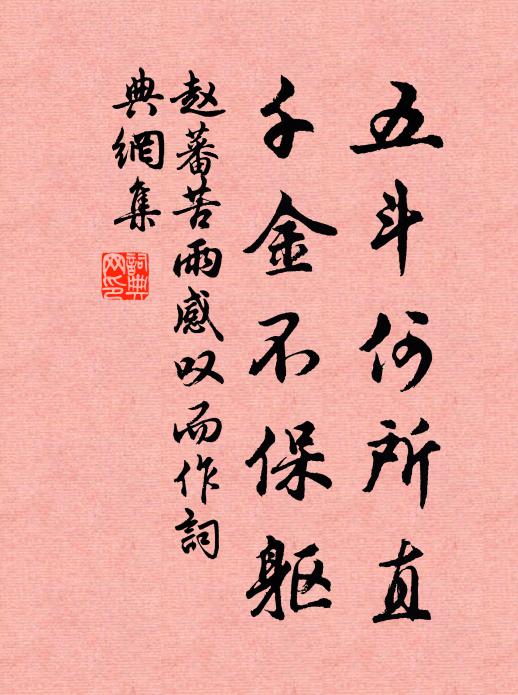 五斗何所直
千金不保躯
赵蕃苦雨感叹而作词
典網集
詞典網印